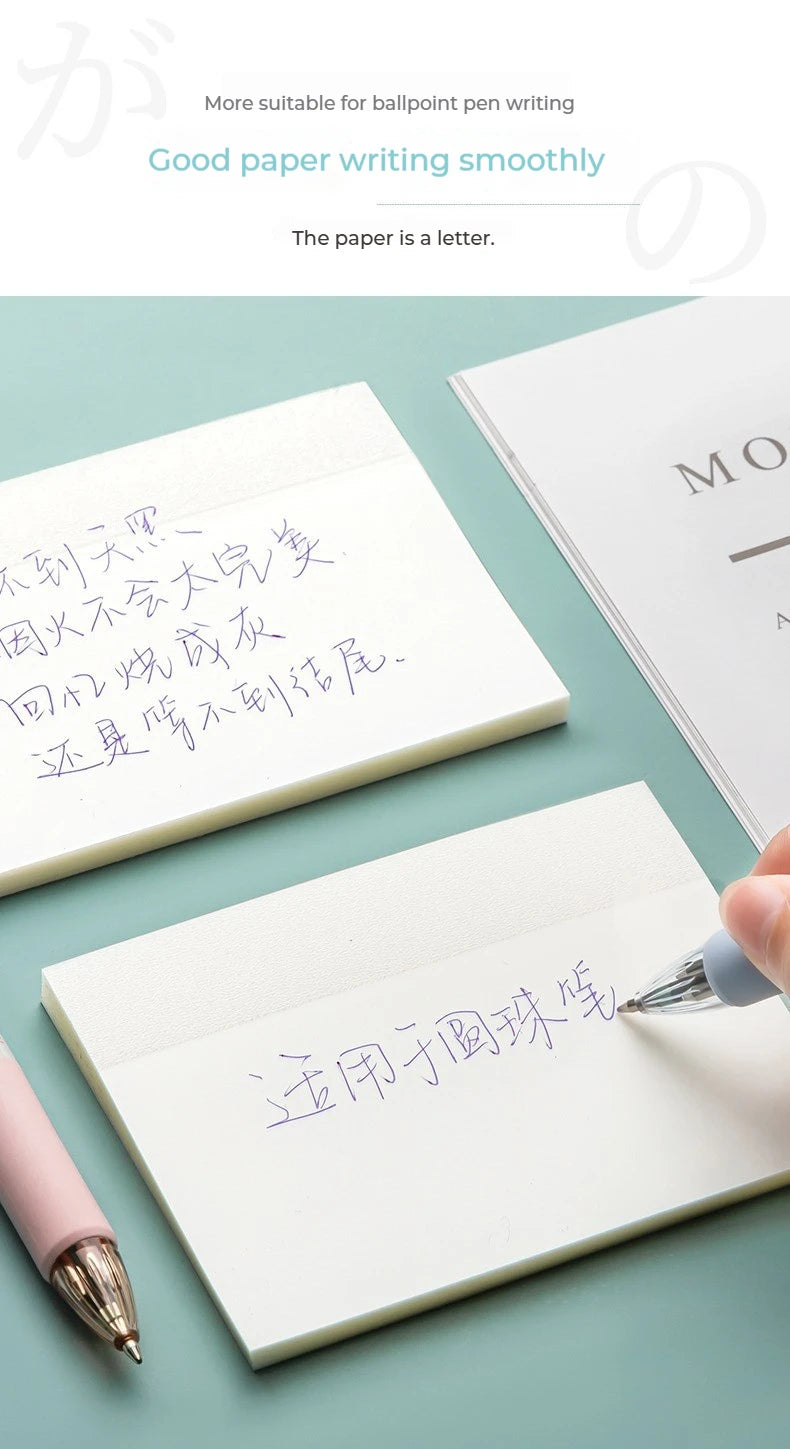 が
More suitable for ballpoint pen writing
Good paper writing smoothly
の
The paper is a letter.
MO
A
不到天黑
烟火不会太完美
回忆烧成灰
还是等不到结尾
适用于圆珠笔